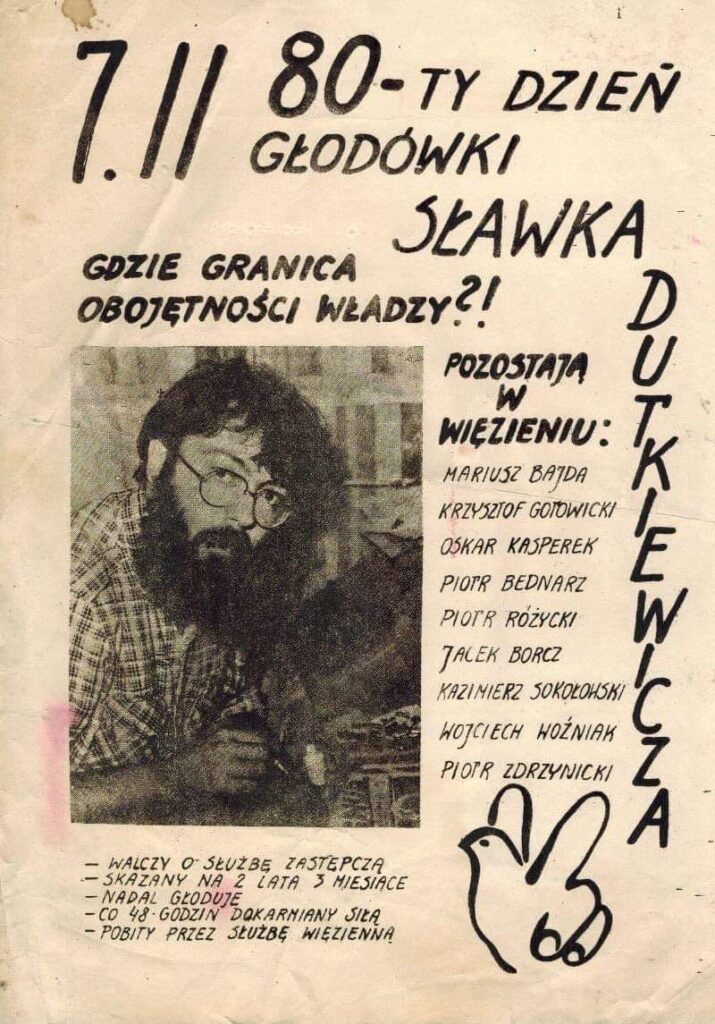 7.11
80-TY DZIEŃ
GŁODÓWKI
SŁAWKA
DUTKIEWICZA
GDZIE GRANICA
OBOJĘTNOŚCI WŁADZY?!
POZOSTAJĄ
W
WIĘZIENIU:
MARIUSZ BAJDA
KRZYSZTOF GOTOWICKI
OSKAR KASPEREK
PIOTR BEDNARZ
PIOTR RÓŻYCKI
JACEK BORCZ
KAZIMIERZ SOKOŁOWSKI
WOJCIECH WOŹNIAK
PIOTR ZDRZYNICKI
– WALCZY O SŁUŻBĘ ZASTĘPCZĄ
– SKAZANY NA 2 LATA 3 MIESIĄCE
– NADAL GŁODUJE
– CO 48 GODZIN DOKARMIANY SIŁĄ
– POBITY PRZEZ SŁUŻBĘ WIĘZIENNĄ